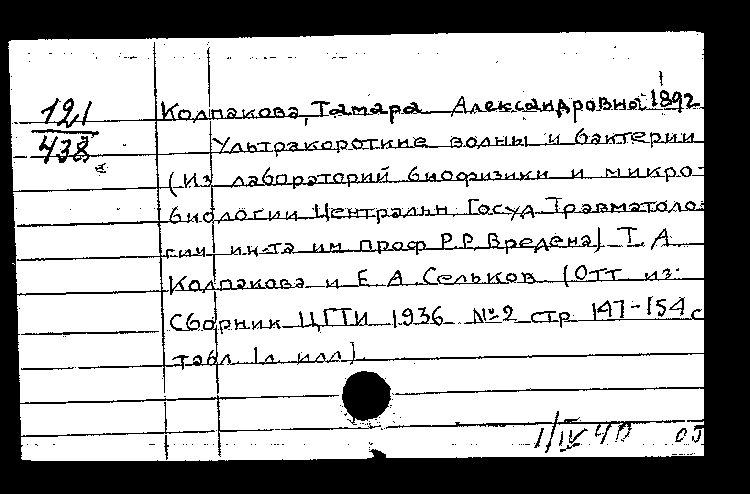 121
438
Колпакова, Тамара Александровна 1892
Ультракороткие волны и бактерии
(Из лабораторий биофизики и микро-
биологии Центральн. Госуд. Травматоло-
гич. ин-та им. проф. Р.Р. Вредена) Т. А.
Колпакова и Е. А. Сельков (Отт. из:
Сборник ЦГТИ 1936 № 2 стр. 147-154 с
табл. 1 л. илл.)
1/IV 40